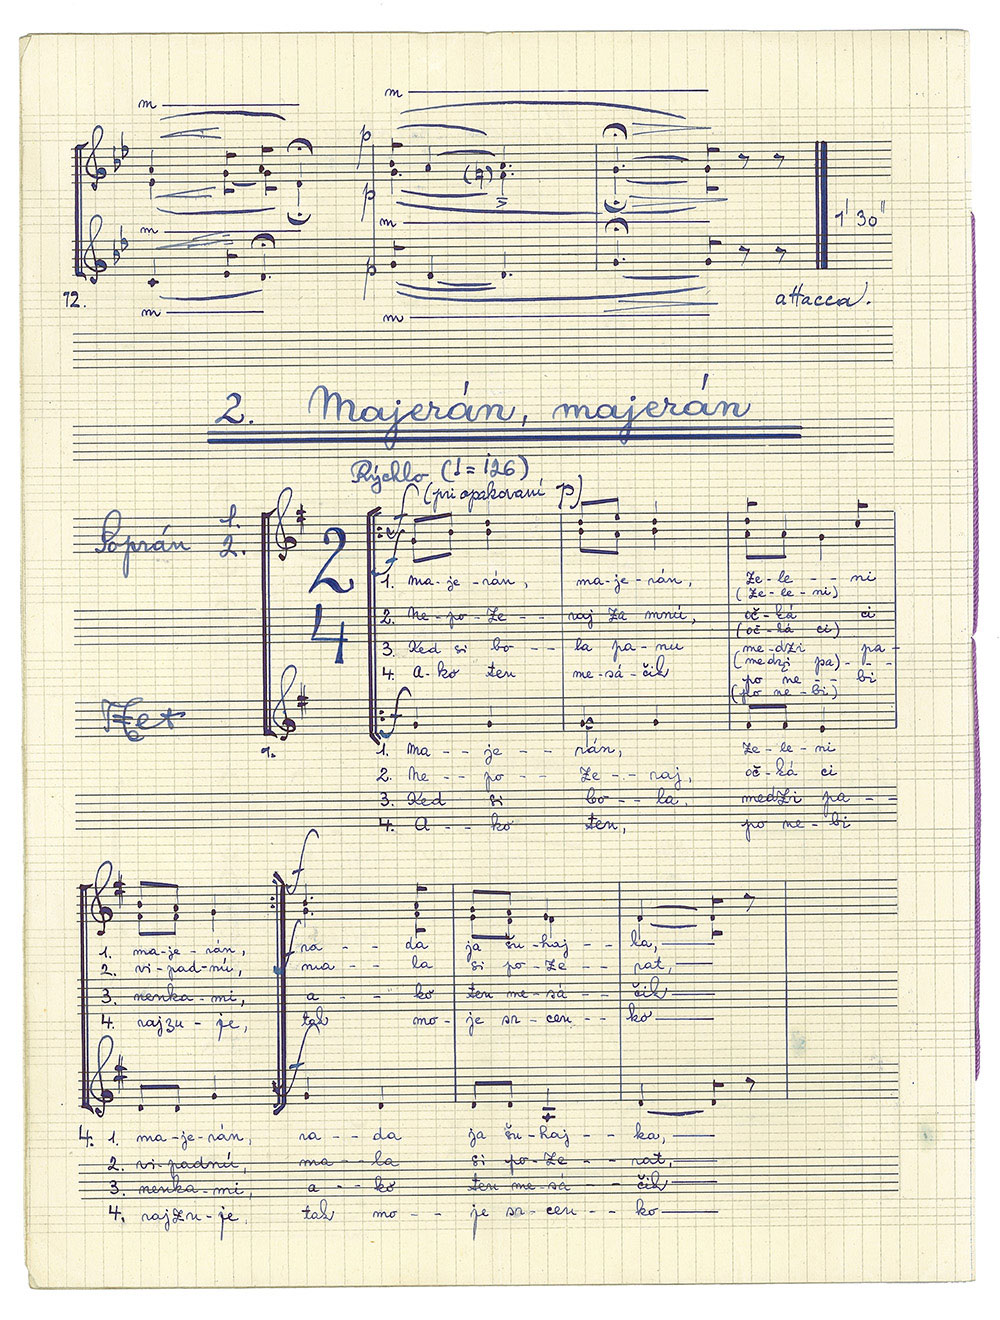 m m
p
p
m m
p
1' 30"
12.
attacca.
m m
2. Majerán, majerán
Rýchlo (♩= 126)
f (pri opakovaní p)
Soprán 1.
2.
2
4
f
1. ma-je-rán, ma-je-rán, ze-le--ni
(ze-le-ni)
2. Ne-po-ze-- raj za mnú, oč-ká ci
(oč-ká ci)
3. Ked si bo-- la pa-nu me-dzi pa-
(medzi pa)---
4. A-ko ten me-sá-čik po ne-- bi
(po ne-bi)
f
9.
1. Ma-- je-- rán, ze-le-ni
2. Ne-- po-- ze-- raj, oč-ká ci
3. Ked si bo-- la, medzi pa--
4. A-- ko ten, po ne-bi
f
1. ma-je-rán, ra-- da ja šu-haj--
2. vi-pad-nú, ma-- la si po-ze-- rat,
3. nenka-mi, a-- ko ten me-sá-- čik
4. rajzu-je, tak mo-je sr-cen-- ko
f
4. 1. ma-je-rán, ra-- da ja šu-haj-- ka,
2. vi-padnú, ma--la si po-ze-- rat,
3. nenka-mi, a-- ko ten me-sá-- čik
4. rajzu-je, tak mo-- je sr-cen-- ko